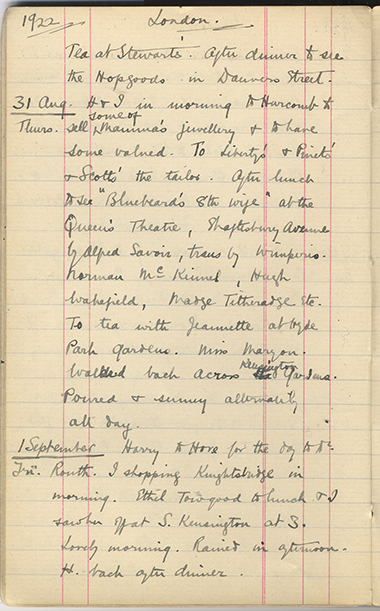 1922 London.
Tea at Stewarts'. After dinner to see
the Hopgoods in Danvers Street.
31 Aug. H & I in morning to Harcomb to
Thurs. sell some of Mamma's jewellery & to have
some valued. To Liberty's & Pinet's
& Scotts' the tailor. After lunch
to see "Bluebeard's 8th wife" at the
Queen's Theatre, Shaftsbury Avenue
by Alfred Savoir, trans by Wimperis.
Norman McKinnel, Hugh
Wakefield, Madge Titheradge Etc.
To tea with Jeannette at Hyde
Park Gardens. Miss Maryon.
Walked back across Kensington Gardens.
Poured & sunny alternately
all day.
1 September Harry to Hove for the day to Dr
Fri. Routh. I shopping Knightsbridge in
morning. Ethel Towgood to lunch & I
saw her off at S. Kensington at 3.
Lovely morning. Rained in afternoon.
H. back after dinner.